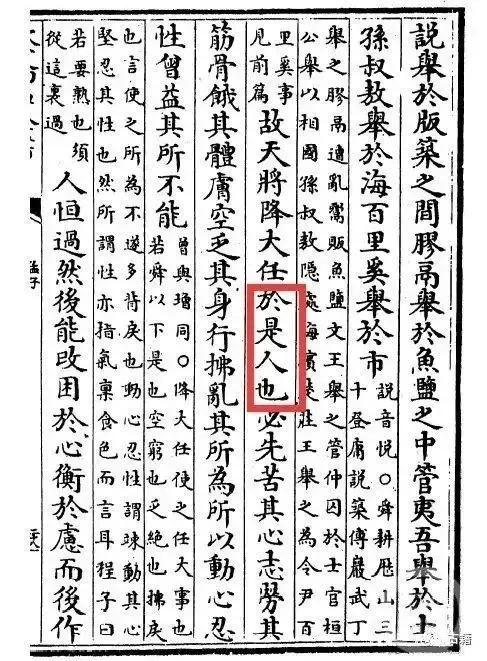 說舉於版築之間膠鬲舉於魚鹽之中管夷吾舉於士
孫叔敖舉於海百里奚舉於市
說音悅○舜耕歷山三
十登庸說築傅巖武丁
舉之膠鬲遭亂鬻販魚鹽文王舉之管仲囚於士官桓
公舉以相國孫叔敖隱處海濱楚莊王舉之為令尹
里奚事
見前篇
故天將降大任於是人也必先苦其心志勞其
筋骨餓其體膚空乏其身行拂亂其所為所以動心忍
性曾益其所不能
曾與增同○降大任使之任大事也
若舜以下是也空窮也乏絕也拂戾
也言使之所為不遂多背戾也動心忍性謂竦動其心
堅忍其性也然所謂性亦指氣稟食色而言耳程子曰
若要熟也須
從這裏過
人恒過然後能改困於心衡於慮而後作
孟子